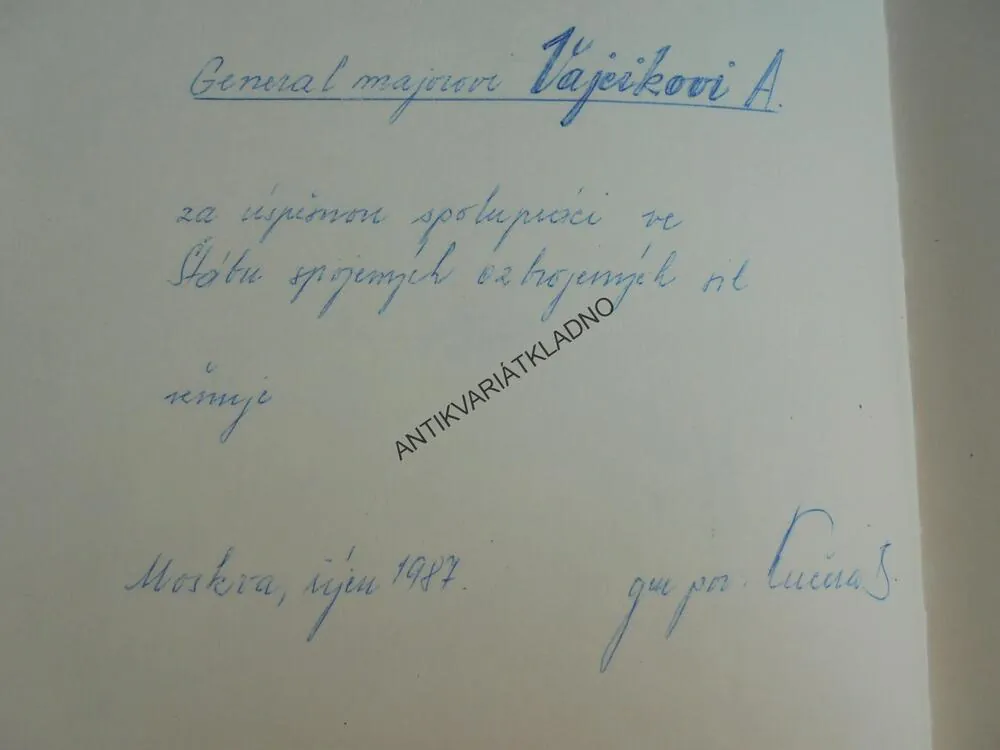 General majorovi Vajcikovi A.
za úspěšnou spolupráci ve
Štábu spojených ozbrojených sil
ANTIKVARIÁTKLADNO
věnuje
Moskva, říjen 1987.
gen por. Kučera J.